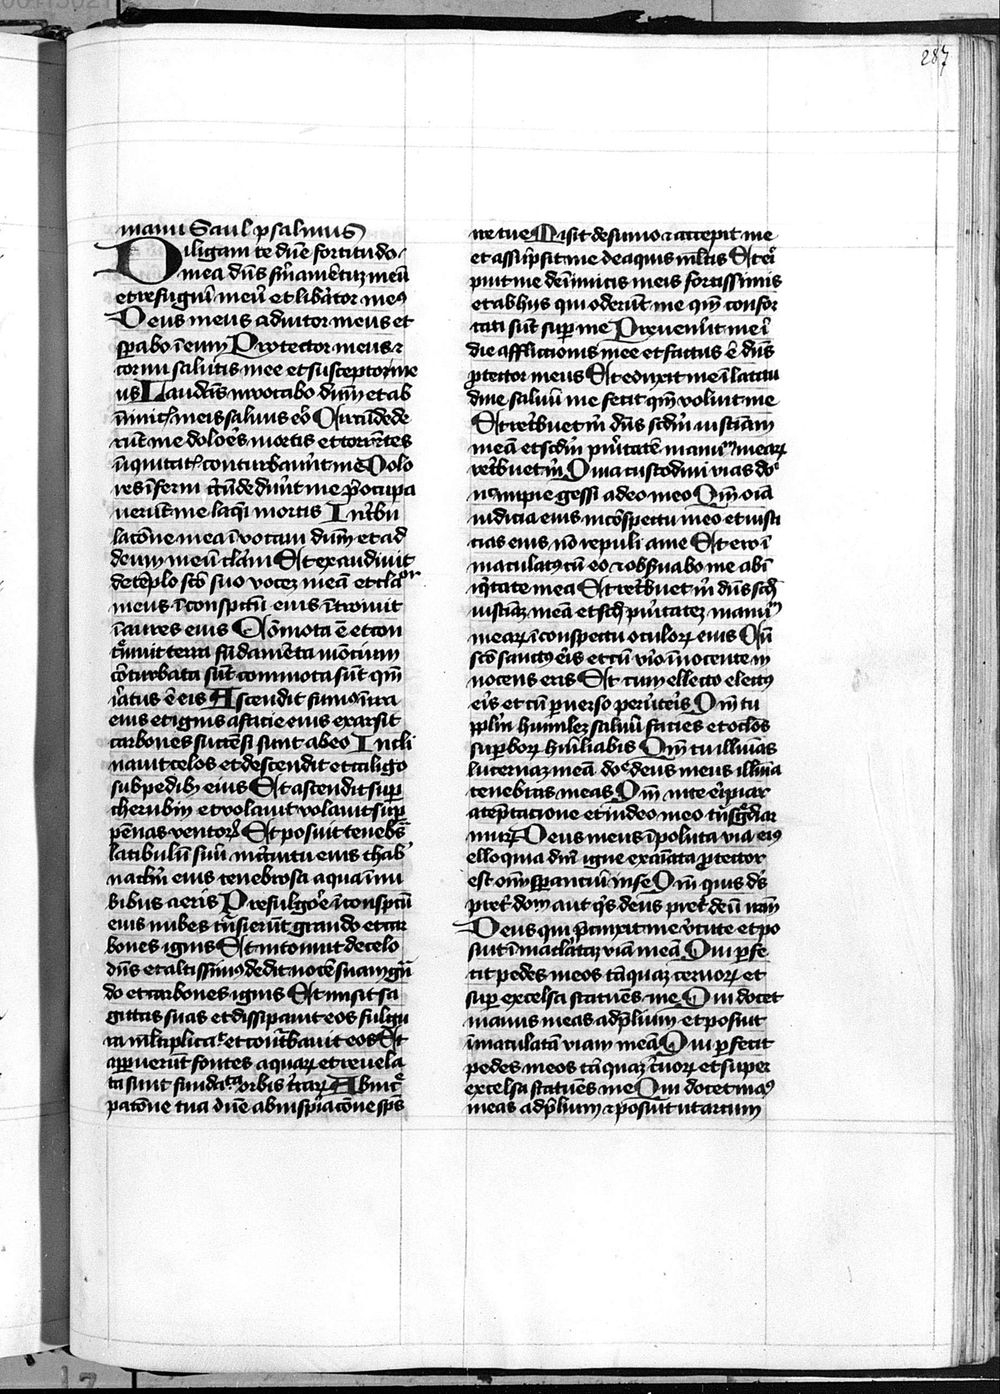 287
manu Saul psalmus
Diligam te dn̄e fortitudo
mea dn̄s firmamētuȝ meū
et refugiū meū et libātor meꝰ
Deus meus adiutor meus et
sp̄abo ī eum Protector meus ⁊
cornu salutis mee et susceptor me
us Laudās invocabo dn̄m et ab
inimicꝭ meis salvus ero Circūdede
rūt me doloēs mortis et torrētes
iniquitatꝭ conturbaverūt me Dolo
res īferni circūdederūt me p̄ocupa
uerūt me laquei mortis In tribu
lacōne mea īvocavi dn̄m et ad
deum meū clamavi Et exaudivit
de tēplo scō suo voceȝ meā et clamor
meus ī conspectu eius ītroivit
ī aures eius Cōmota ē et con
tremuit terra fūdamēta mōtium
cōturbata sūt commota sūt qm̄
iratus ē eis Ascendit fumus in ira
eius et ignis a facie eius exarsit
carbones succēsi sunt ab eo Incli
navit celos et descendit et caligo
sub pedibꝰ eius Et ascendit sup
cherubin et volavit volavit sup
pēnas ventorꝝ Et posuit tenebras
latibulū suū in circuitu eius thab
naculm̄ eius tenebrosa aqua ī nu
bibus aeris Prefulgore ī conspectu
eius nubes trāsierūt grando et car
bones ignis Et intonuit de celo
dn̄s et altissimꝰ dedit vocē suam grā
do et carbones ignis Et misit sa
gittas suas et dissipavit eos fulgu
ra multiplicavit et conturbavit eos Et
apparuerūt fontes aquarꝝ et revela
ta sunt fundamēta orbis terrarꝝ Ab incre
pacōne tua dn̄e ab inspiracōne sps̄
ire tue Misit de sumo ⁊ accepit me
et assūpsit me de aquis multis Eri
puit me de inimicis meis fortissimis
et ab hiis qui oderūt me qm̄ confor
tati sūt super me Prevenerūt me ī
die afflictionis mee et factus ē dn̄s
ꝓtector meus Et eduxit me ī latitu
dine salvū me fecit qm̄ voluit me
Et retribuet mͥ dn̄s scdm̄ iusticiam
meā et scdm̄ puritatē manuū mearꝝ
retribuet mͥ Quia custodivi vias dni
nec impie gessi a deo meo Qm̄ oīa
iudicia eius in cōspectu meo et iusti
cias eius nō repuli a me Et ero ī
maculatꝰ cū eo ⁊ observabo me ab ī
iqͥtate mea Et retribuet mͥ dn̄s scdm̄
iusticiaȝ meā et scdm̄ puritateȝ manuū
mearꝝ ī conspectu oculorꝝ eius Cū
scō sanctꝰ eris et cū viro īnocente in
nocens eris Et cum electo electꝰ
eris et cū perverso perverteris Qm̄ tu
pplm̄ humileȝ salvū facies et oclos
superborꝝ humiliabis Qm̄ tu illūinas
lucernaȝ meā dne deus meus illūina
tenebras meas Qm̄ in te eripiar
a tēptacione et in deo meo trāsgrediar
murū Deus meus īpoluta via eiꝰ
elloquia dni igne exaīata ꝓtector
est omniū sperantiū in se Qm̄ quis ds̄
preter dnm aut qͥs deus preter deū nrm̄
Deus qui precinxit me virtute et po
suit īmaculataȝ viā meā Qui perfe
cit pedes meos tāquaȝ cervorꝝ et
super excelsa statuēs me Qui docet
manus meas ad prelium et posuit
īmaculatā viam meā Qui perfecit
pedes meos tāquaȝ cervorꝝ et super
excelsa statuēs me Qui docet manꝰ
meas ad prelium ⁊ posuit ut arcum